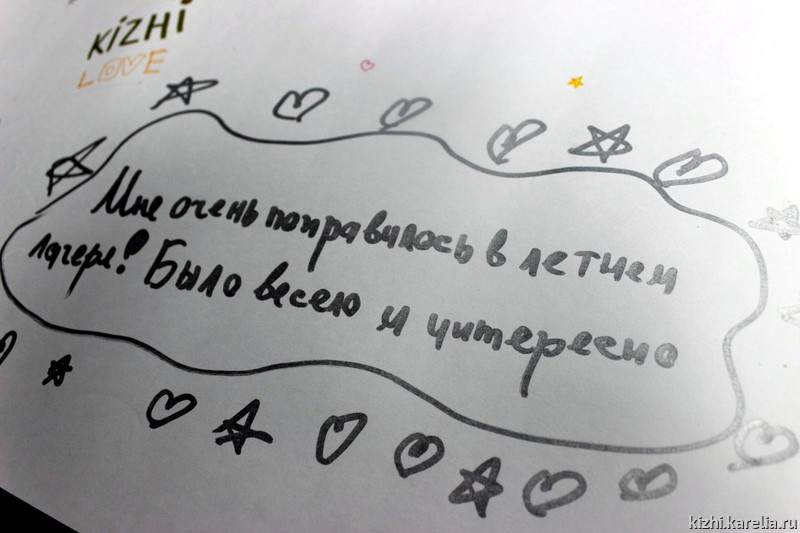 KIZHI
LOVE
Мне очень понравилось в летнем
лагере! Было весело и интересно
kizhi.karelia.ru